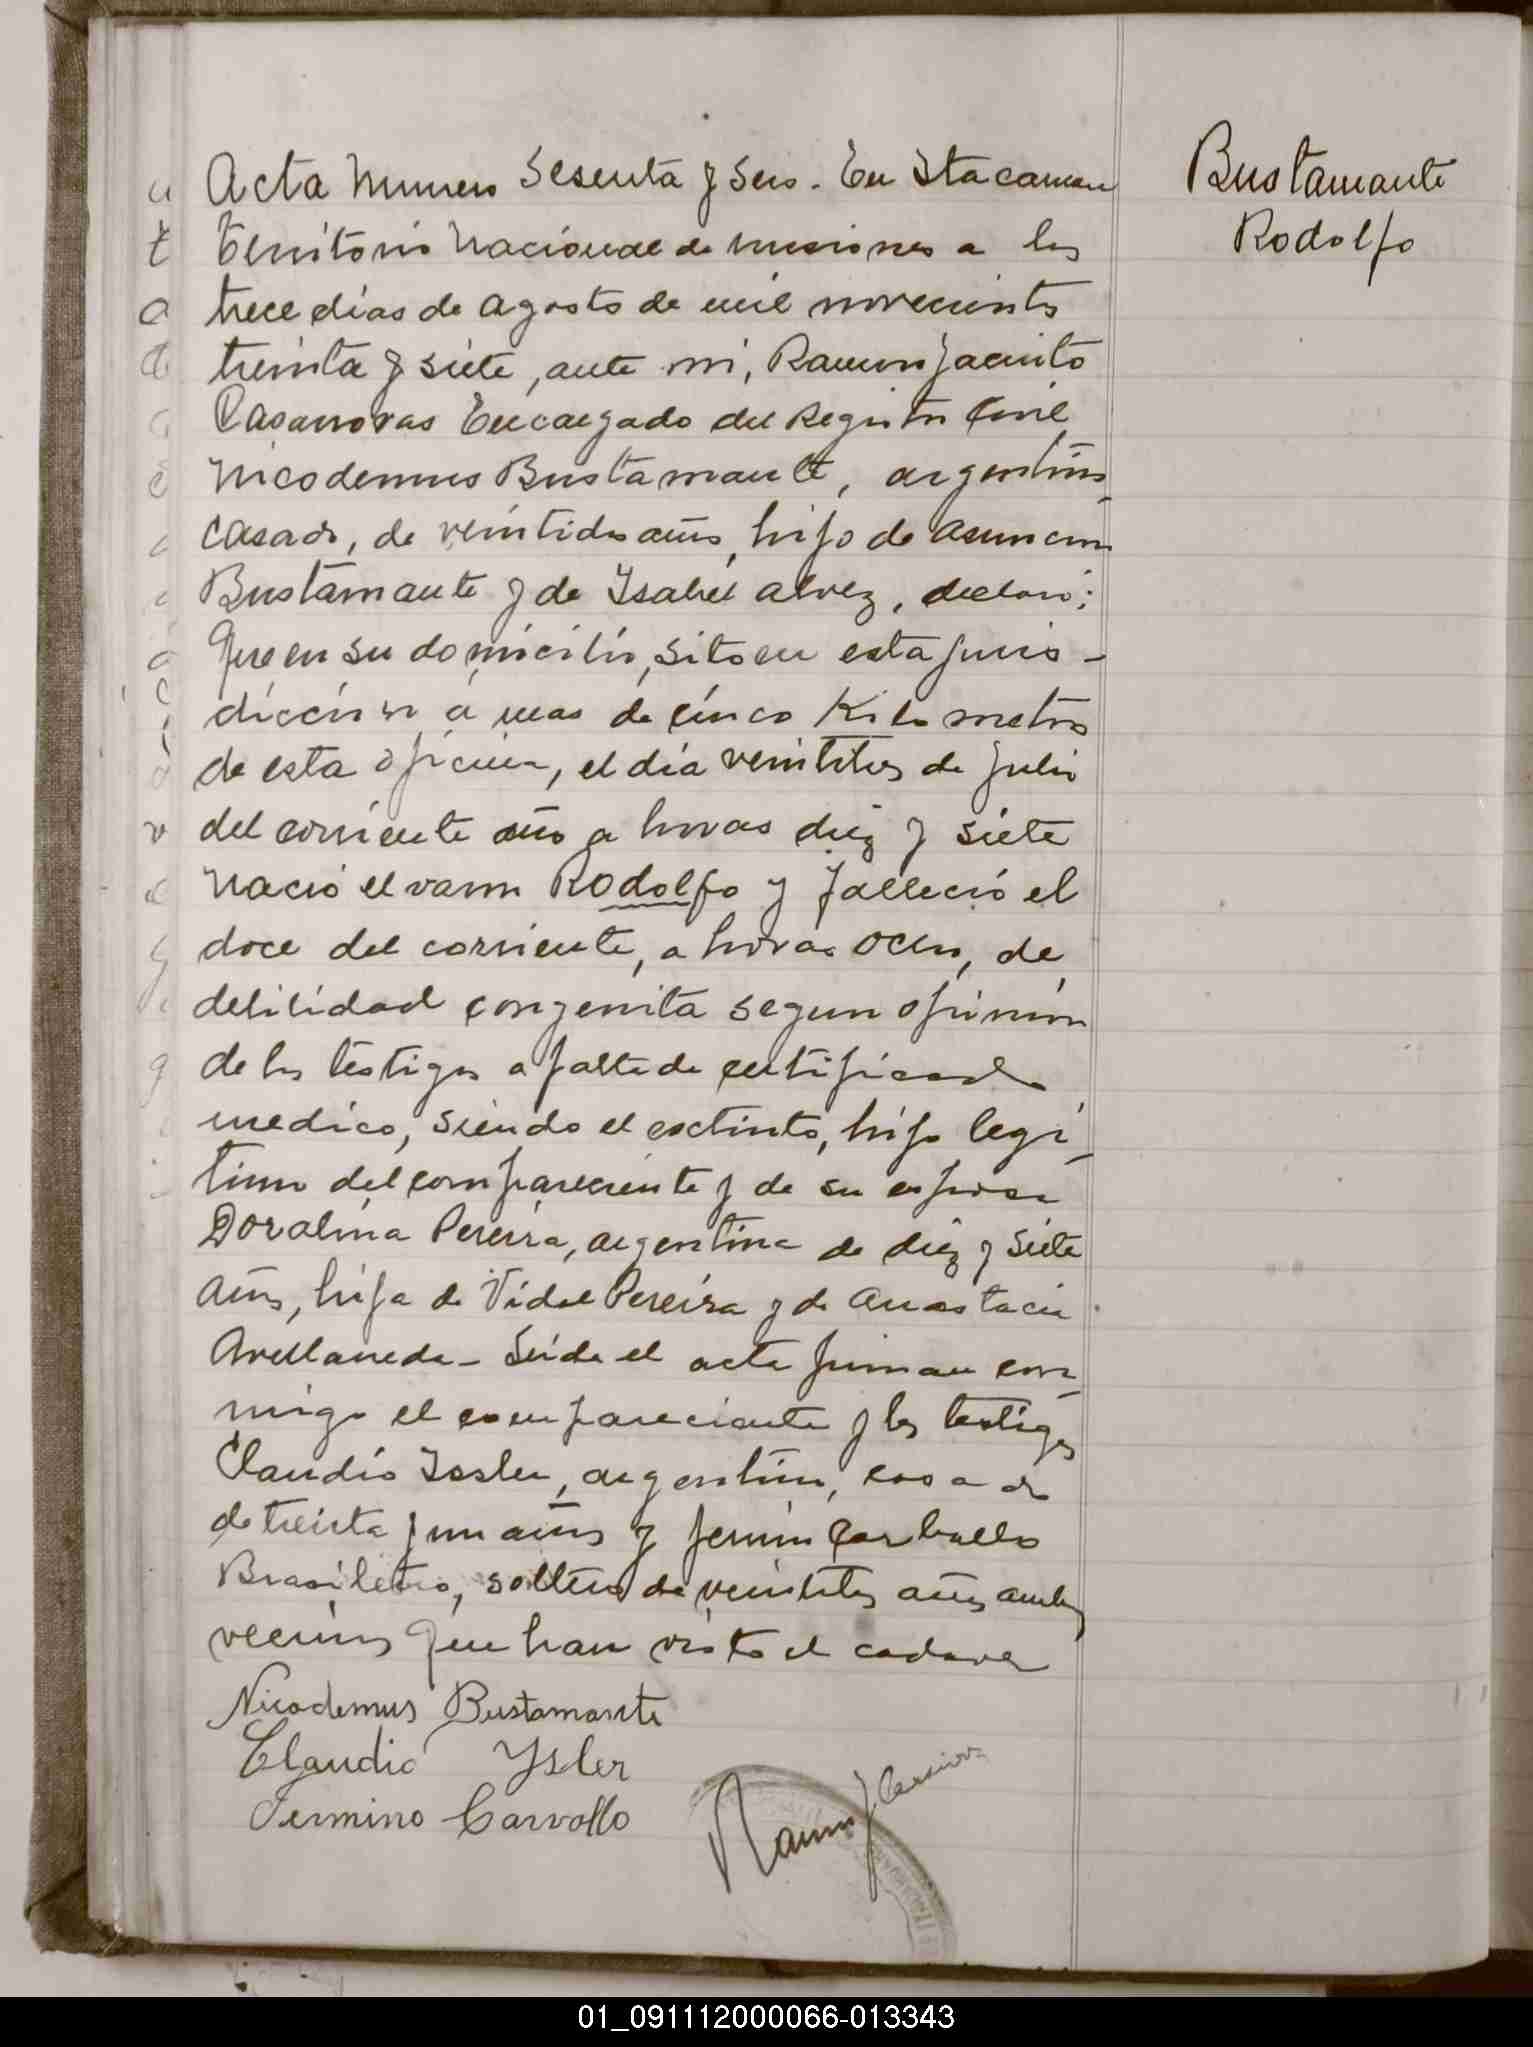 Acta Numero Sesenta y Seis. En Itacaruare
Bustamante
Rodolfo
Territorio Nacional de Misiones a los
trece dias de Agosto de mil novecientos
treinta y siete, ante mi, Ramon Jacinto
Casanovas Encargado del Registro Civil
Nicodemus Bustamante, argentino
casado, de veintidos años, hijo de Asuncion
Bustamante y de Isabel Alvez, declaró:
Que en su domicilio, sito en esta juris-
diccion a mas de cinco Kilometros
de esta oficina, el día veintitres de Julio
del corriente año a horas diez y siete
Nació el varon Rodolfo y falleció el
doce del corriente, a horas ocho, de
debilidad congenita segun opinion
de los testigos a falta de certificado
medico, siendo el exctinto, hijo legi-
timo del compareciente y de su esposa
Doralina Pereira, argentina de diez y siete
años, hija de Vidal Pereira y de Anastacia
Avellaneda - Leida el acta firman con-
migo el compareciente y los testigos
Claudio Issler, argentino, casado
de treinta y un años y Fermin Carballo
Brasileño, soltero de veintitres años ambos
vecinos que han visto el cadaver
Nicodemus Bustamante
Claudio Ysler
Fermino Carvallo
Ramon J Casanova
01_091112000066-013343